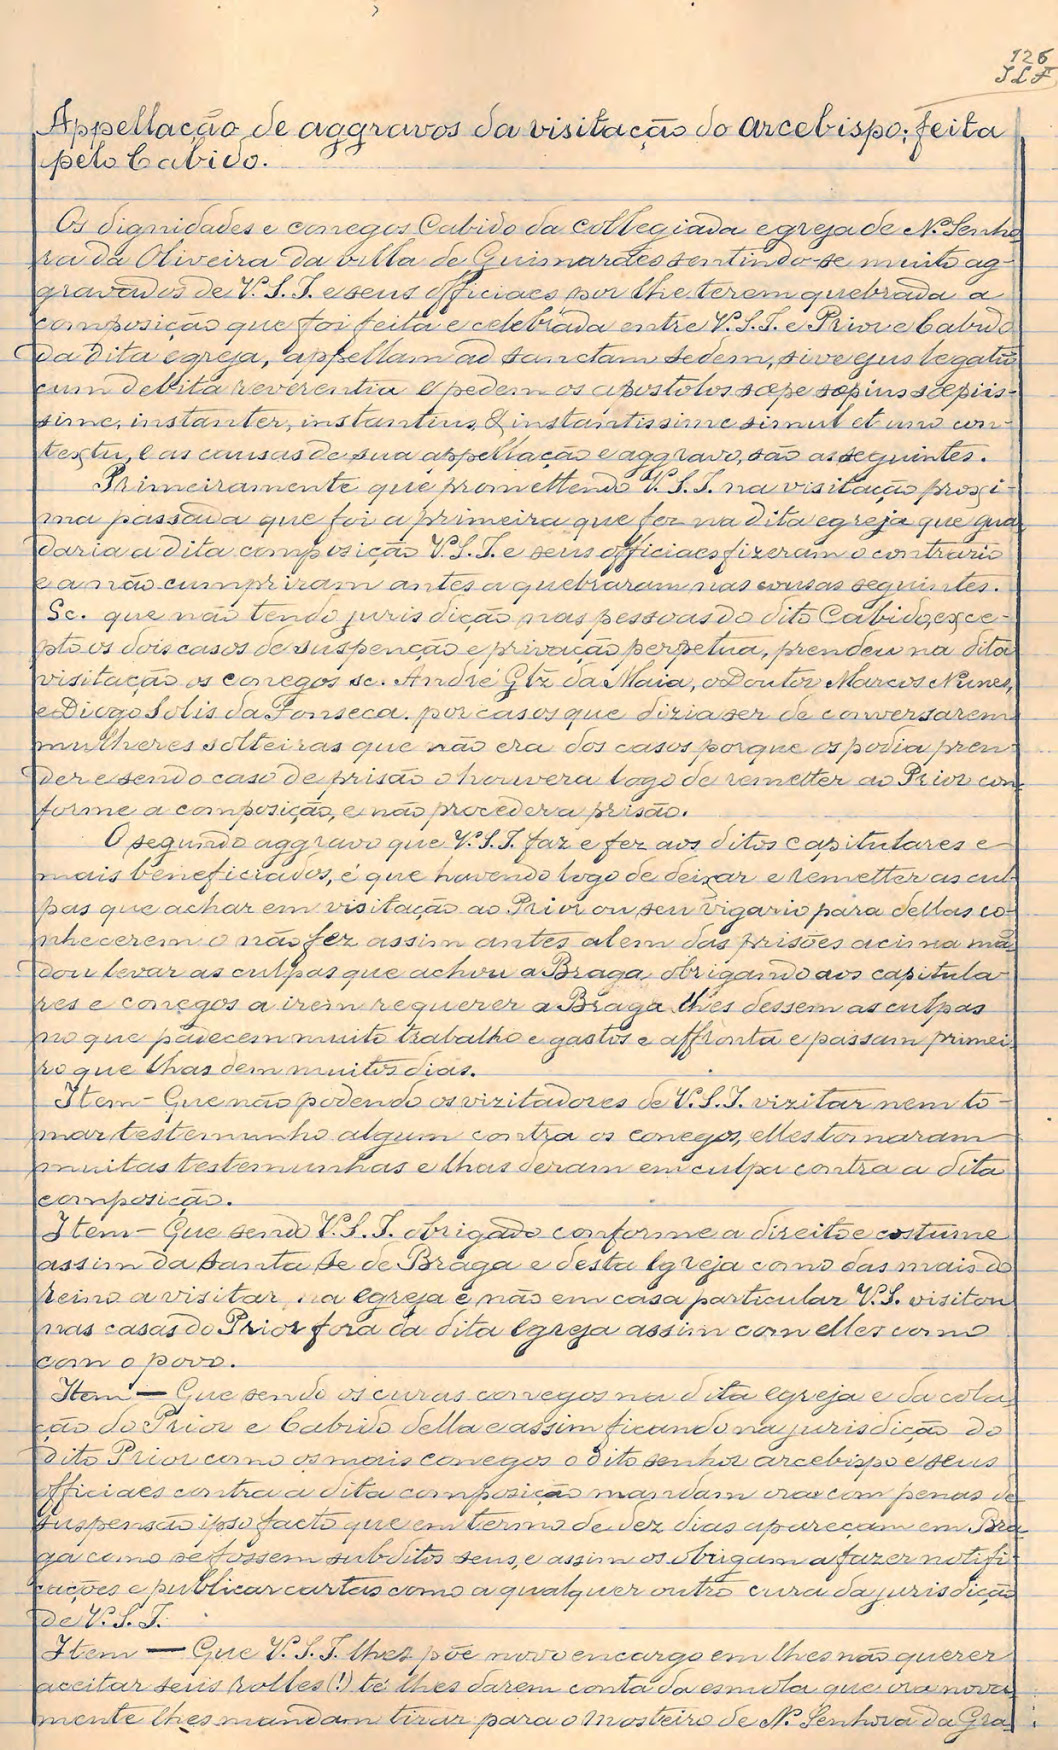 126
JLF
Appellação de aggravos da visitação do arcebispo; feita
pelo Cabido.
Os dignidades e conegos Cabido da collegiada egreja de N. Senho
ra da Oliveira da villa de Guimarães sentindo-se muito ag-
gravados de V. S. I. e seus officiaes por lhe terem quebrada a
composição que foi feita e celebrada entre V. S. I. e Prior e Cabido
da dita egreja, appellam ad sanctam sedem, sive ejus legatũ
cum debita reverentia e pedem os apostolos sæpe sæpius sæpiis-
sime, instanter, instantius, & instantissime simul et uno con-
textu, e as causas de sua appellação e aggravo, são as seguintes.
Primeiramente que promettendo V. S. I. na visitação proxi-
ma passada que foi a primeira que fez na dita egreja que gua
daria a dita composição V. S. I. e seus officiaes fizeram o contrario
e a não cumpriram antes a quebraram nas cousas seguintes.
Sc. que não tendo jurisdição nas pessoas do dito Cabido, exce-
pto os dois casos de suspenção e privação perpetua, prendeu na dita
visitação os conegos sc. André Glz da Maia, o Doutor Marcos Nunes,
e Diogo Solis da Fonseca. por casos que dizia ser de conversarem
mulheres solteiras que não era dos casos porque os podia pren-
der e sendo caso de prisão o houvera logo de remetter ao Prior con-
forme a composição, e não proceder a prisão.
O segundo aggravo que V. S. I. faz e fez aos ditos capitulares e
mais beneficiados, é que havendo logo de deixar e remetter as cul
pas que achar em visitação ao Prior ou seu vigario para dellas co-
nhecerem o não fez assim antes alem das prisões acima mã
dou levar as culpas que achou a Braga obrigando aos capitula-
res e conegos a irem requerer a Braga lhes dessem as culpas
no que padecem muito trabalho e gastos e affronta e passam primei
ro que lhas dem muitos dias.
Item - Que não podendo os vizitadores de V. S. I. vizitar nem to-
mar testemunho algum contra os conegos, elles tomaram
muitas testemunhas e lhas deram em culpa contra a dita
composição.
Item - Que sendo V. S. I. obrigado conforme a direito e costume
assim da Santa Sé de Braga e desta Egreja como das mais do
reino a visitar na egreja e não em casa particular V. S. visitou
nas casas do Prior fora da dita egreja assim com elles como
com o povo.
Item — Que sendo os curas conegos na dita egreja e da cola
ção do Prior e Cabido della e assim ficando na jurisdição do
dito Prior como os mais conegos o dito senhor arcebispo e seus
officiaes contra a dita composição mandam ora com penas de
suspensão ipso facto que em termo de dez dias apareçam em Bra
ga como se fossem subditos seus, e assim os obrigam a fazer notifi
cações e publicar cartas como a qualquer outro cura da jurisdição
de V. S. I.
Item — Que V. S. I. lhes põe novo encargo em lhes não querer
aceitar seus rolles (!) té lhes darem conta da esmola que ora nova
mente lhes mandam tirar para o Mosteiro de N. Senhora da Gra-